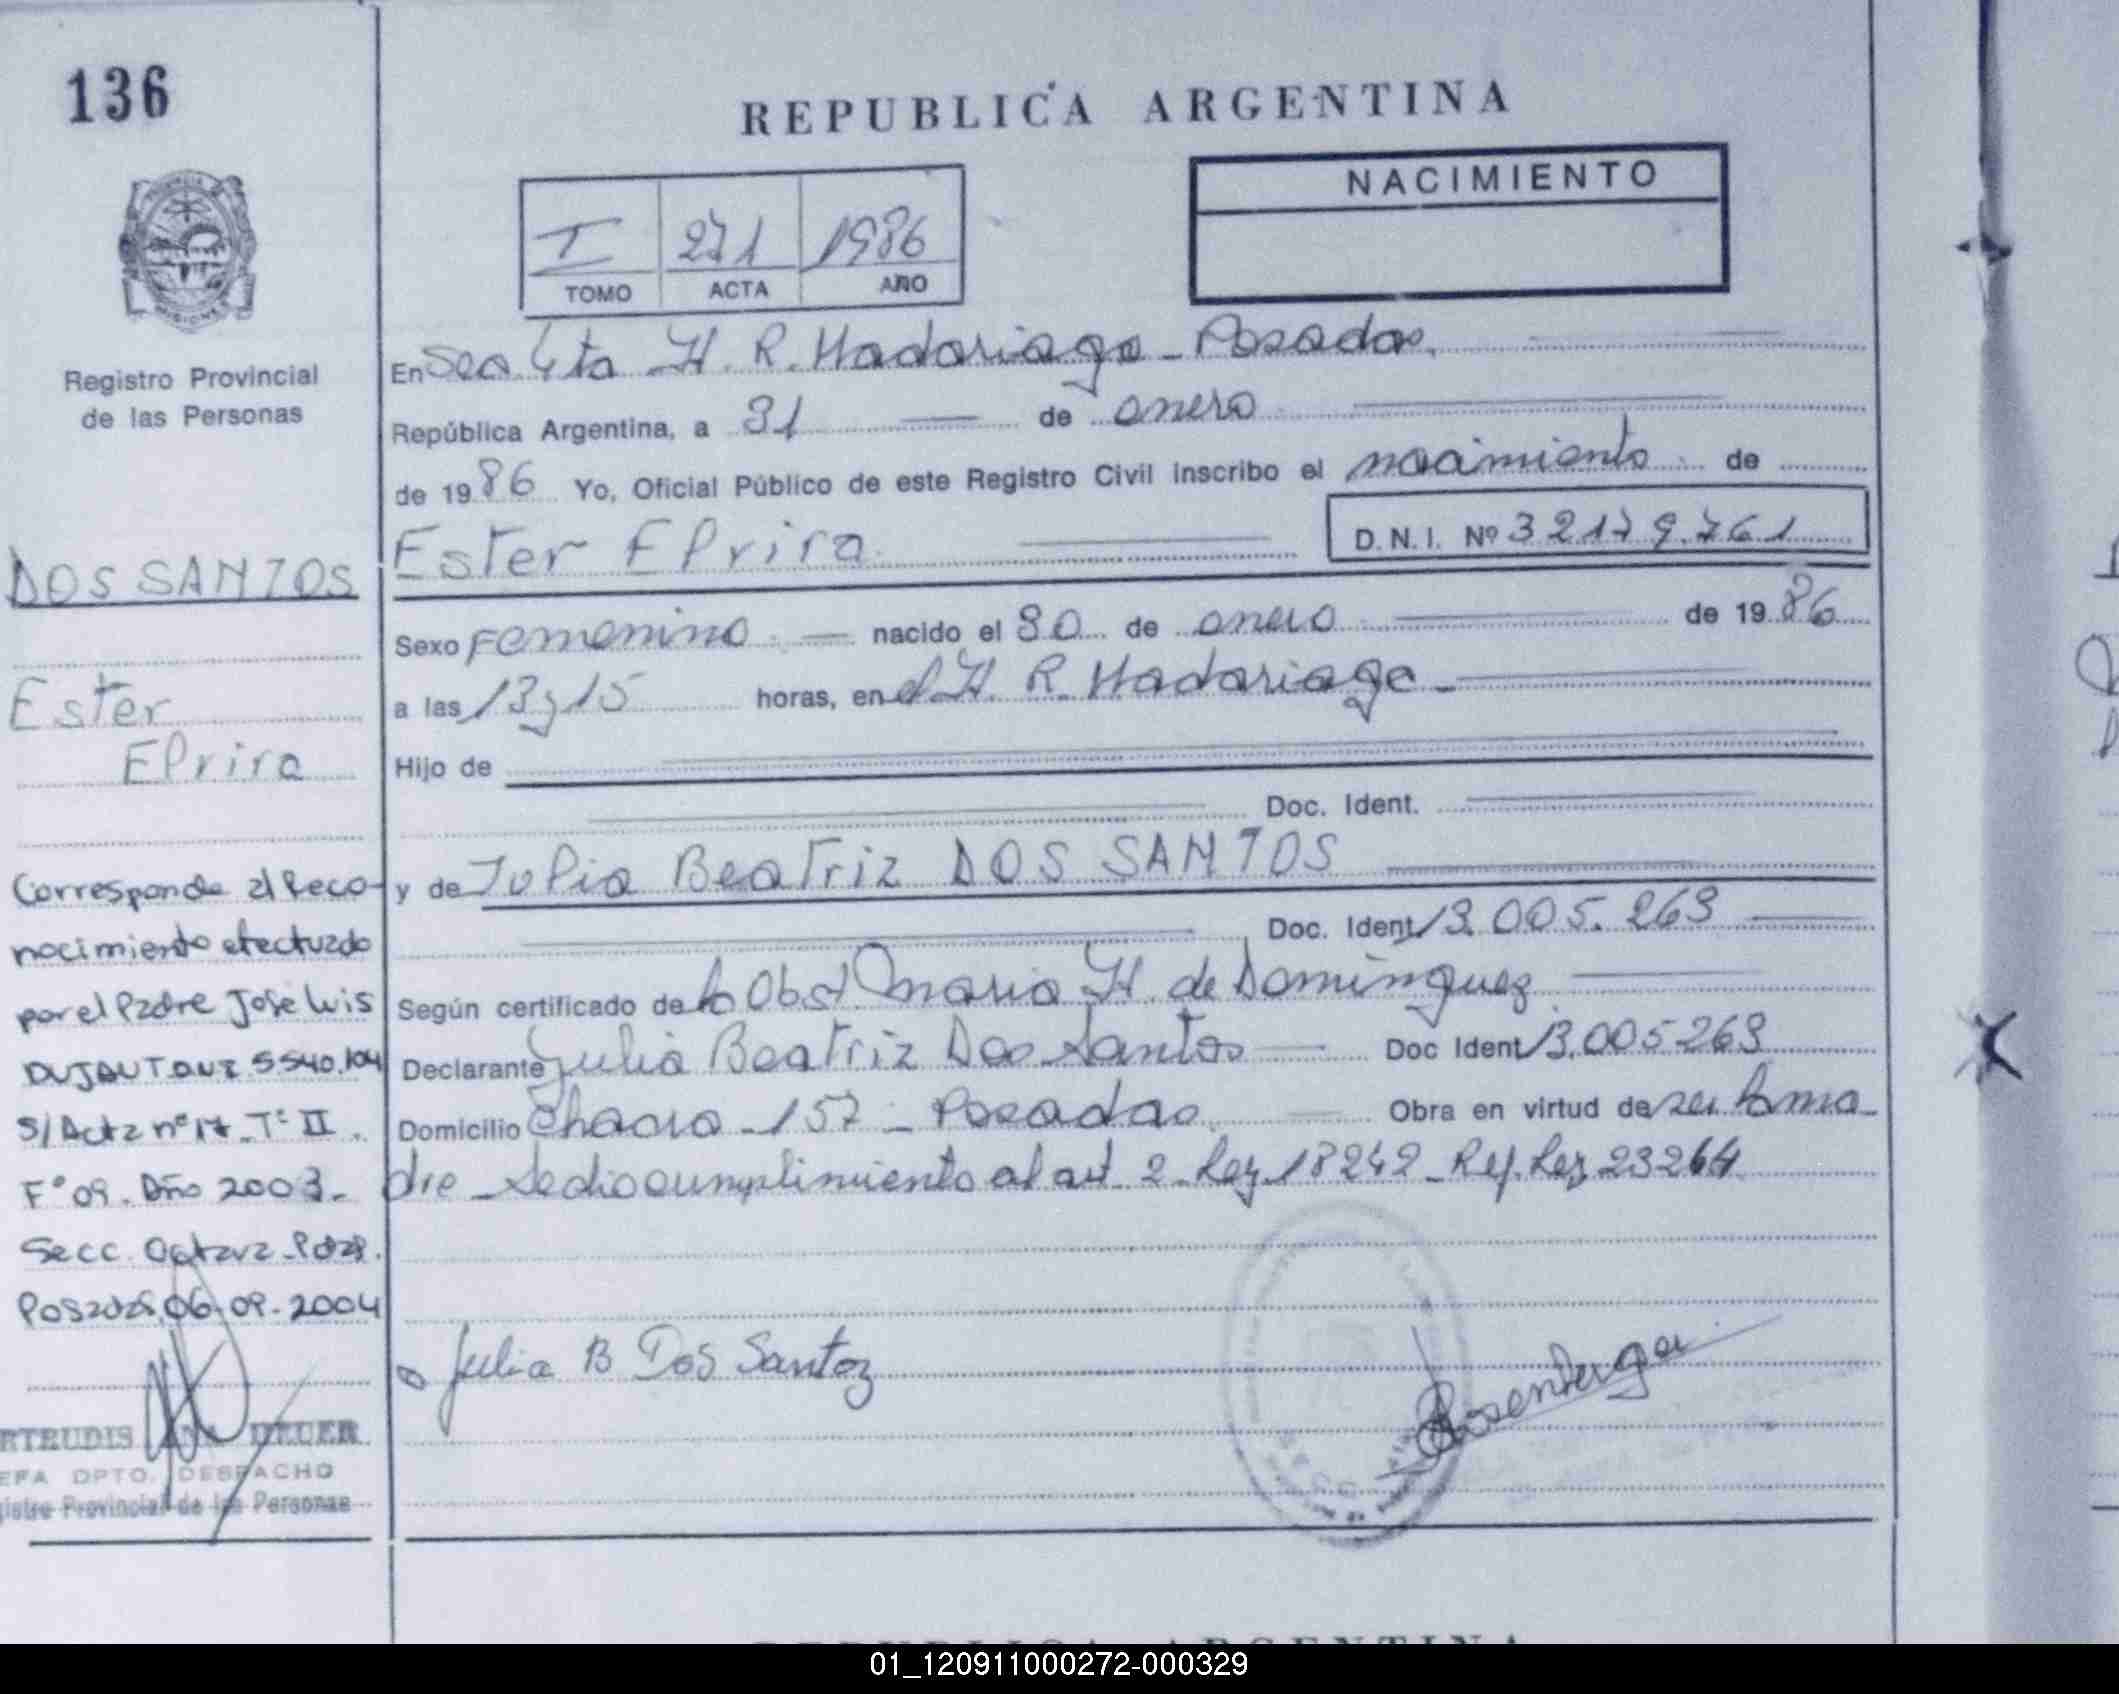 136
REPUBLICA ARGENTINA
NACIMIENTO
I 271 1986
TOMO ACTA AÑO
Registro Provincial
de las Personas
En Sec 4ta H. R. Madariaga - Posadas.
República Argentina, a 31 de enero
de 1986 Yo, Oficial Público de este Registro Civil inscribo el nacimiento de
Ester Elvira
D.N.I. Nº 32179.761
Sexo Femenino nacido el 30 de enero de 1986
a las 13y15 horas, en el H. R. Madariaga
Hijo de
Doc. Ident.
y de Julia Beatriz DOS SANTOS
Doc. Ident. 13.005.263
Según certificado de la Obst Maria H. de Dominguez
Declarante Julia Beatriz Dos Santos Doc Ident 13.005263
Domicilio Chacra 157 - Posadas Obra en virtud de ser la ma
dre - Se dio cumplimiento al art 2 - Ley 18242 - Ref. Ley 23264
Julia B Dos Santoz
DOS SANTOS
Ester
Elvira
Corresponde al Reco-
nocimiento efectuado
por el Padre Jose Luis
DUJAUT DNI 5540.104
S/ Acta nº 17 - Tº II.
Fº 09. Año 2003.
Secc. Octava - Pdas.
Posadas, 06-09-2004
RTRUDIS ANA DECER
EFA DPTO. DESPACHO
gistro Provincial de las Personas
REPUBLICA ARGENTINA
01_120911000272-000329